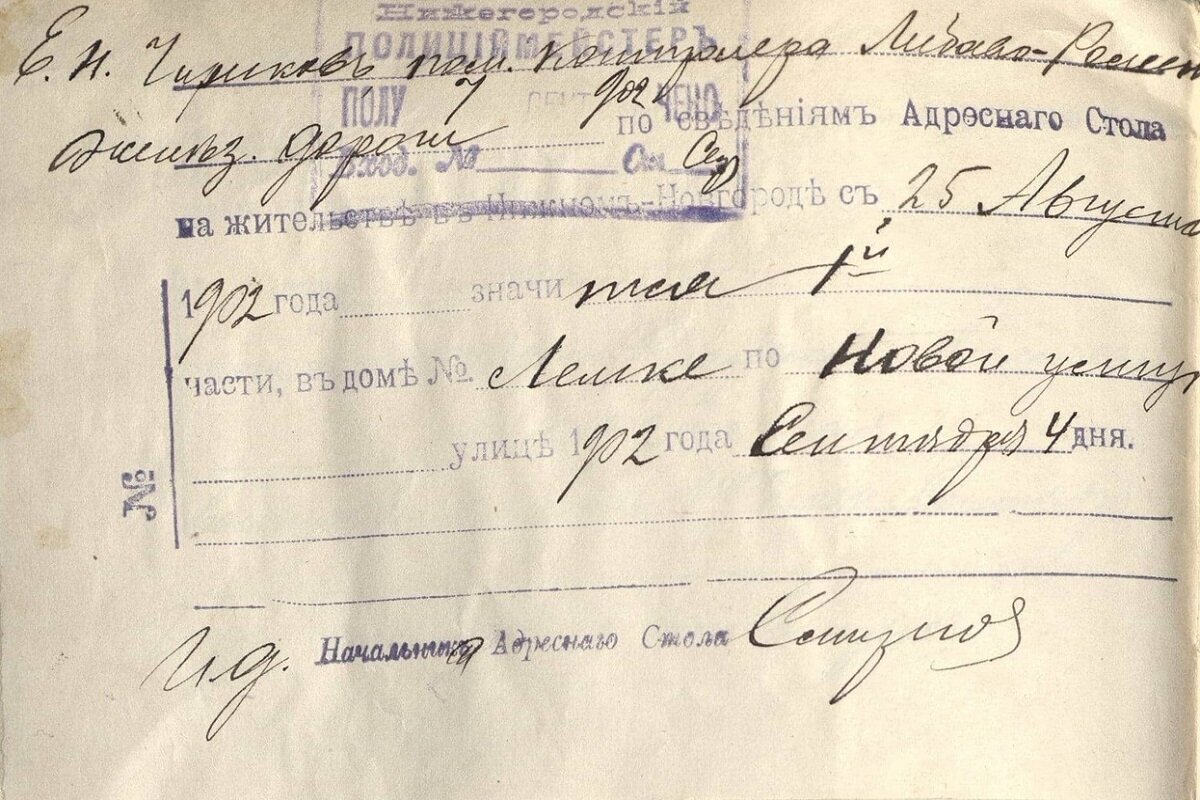 Нижегородскій
ПОЛИЦІЙМЕЙСТЕРЪ
Е. Н. Чириковъ пом. контролера Либаво-Ромен
ПОЛУ 7 СЕНТ 902 ЧЕНО
желѣз. дороги по свѣдѣніямъ Адреснаго Стола
Вход. № Ст.
на жительствѣ въ Нижномъ-Новгородѣ съ 25 Августа
1902 года значится 1й
части, въ домѣ №. Лемке по Новой улиц
улицѣ 1902 года Сентября 4 дня.
№
И. д. Начальника Адреснаго Стола Смирнов